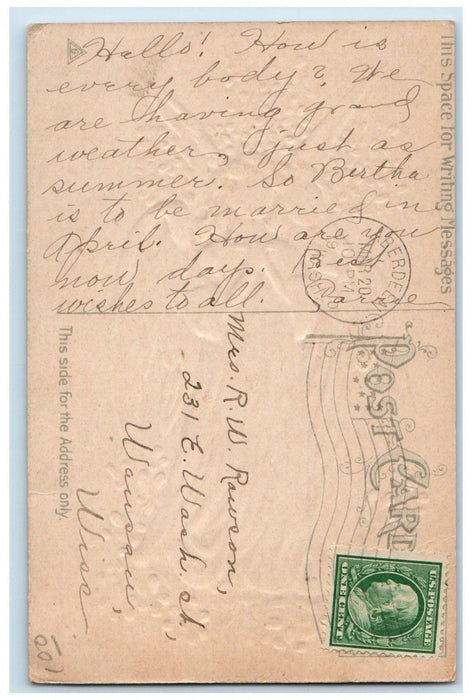 Hello! How is
every body? We
are having grand
weather, just as
summer. So Bertha
is to be married in
April. How are you
now days. Best
wishes to all.
This Space for Writing Messages
ABERDEEN
MAR 20
10 PM
WASH.
POST CARD
This side for the Address only.
Mrs. R. W. Rawson,
231 E. Wash st,
Wausau,
Wisc
U.S. POSTAGE
ONE CENT